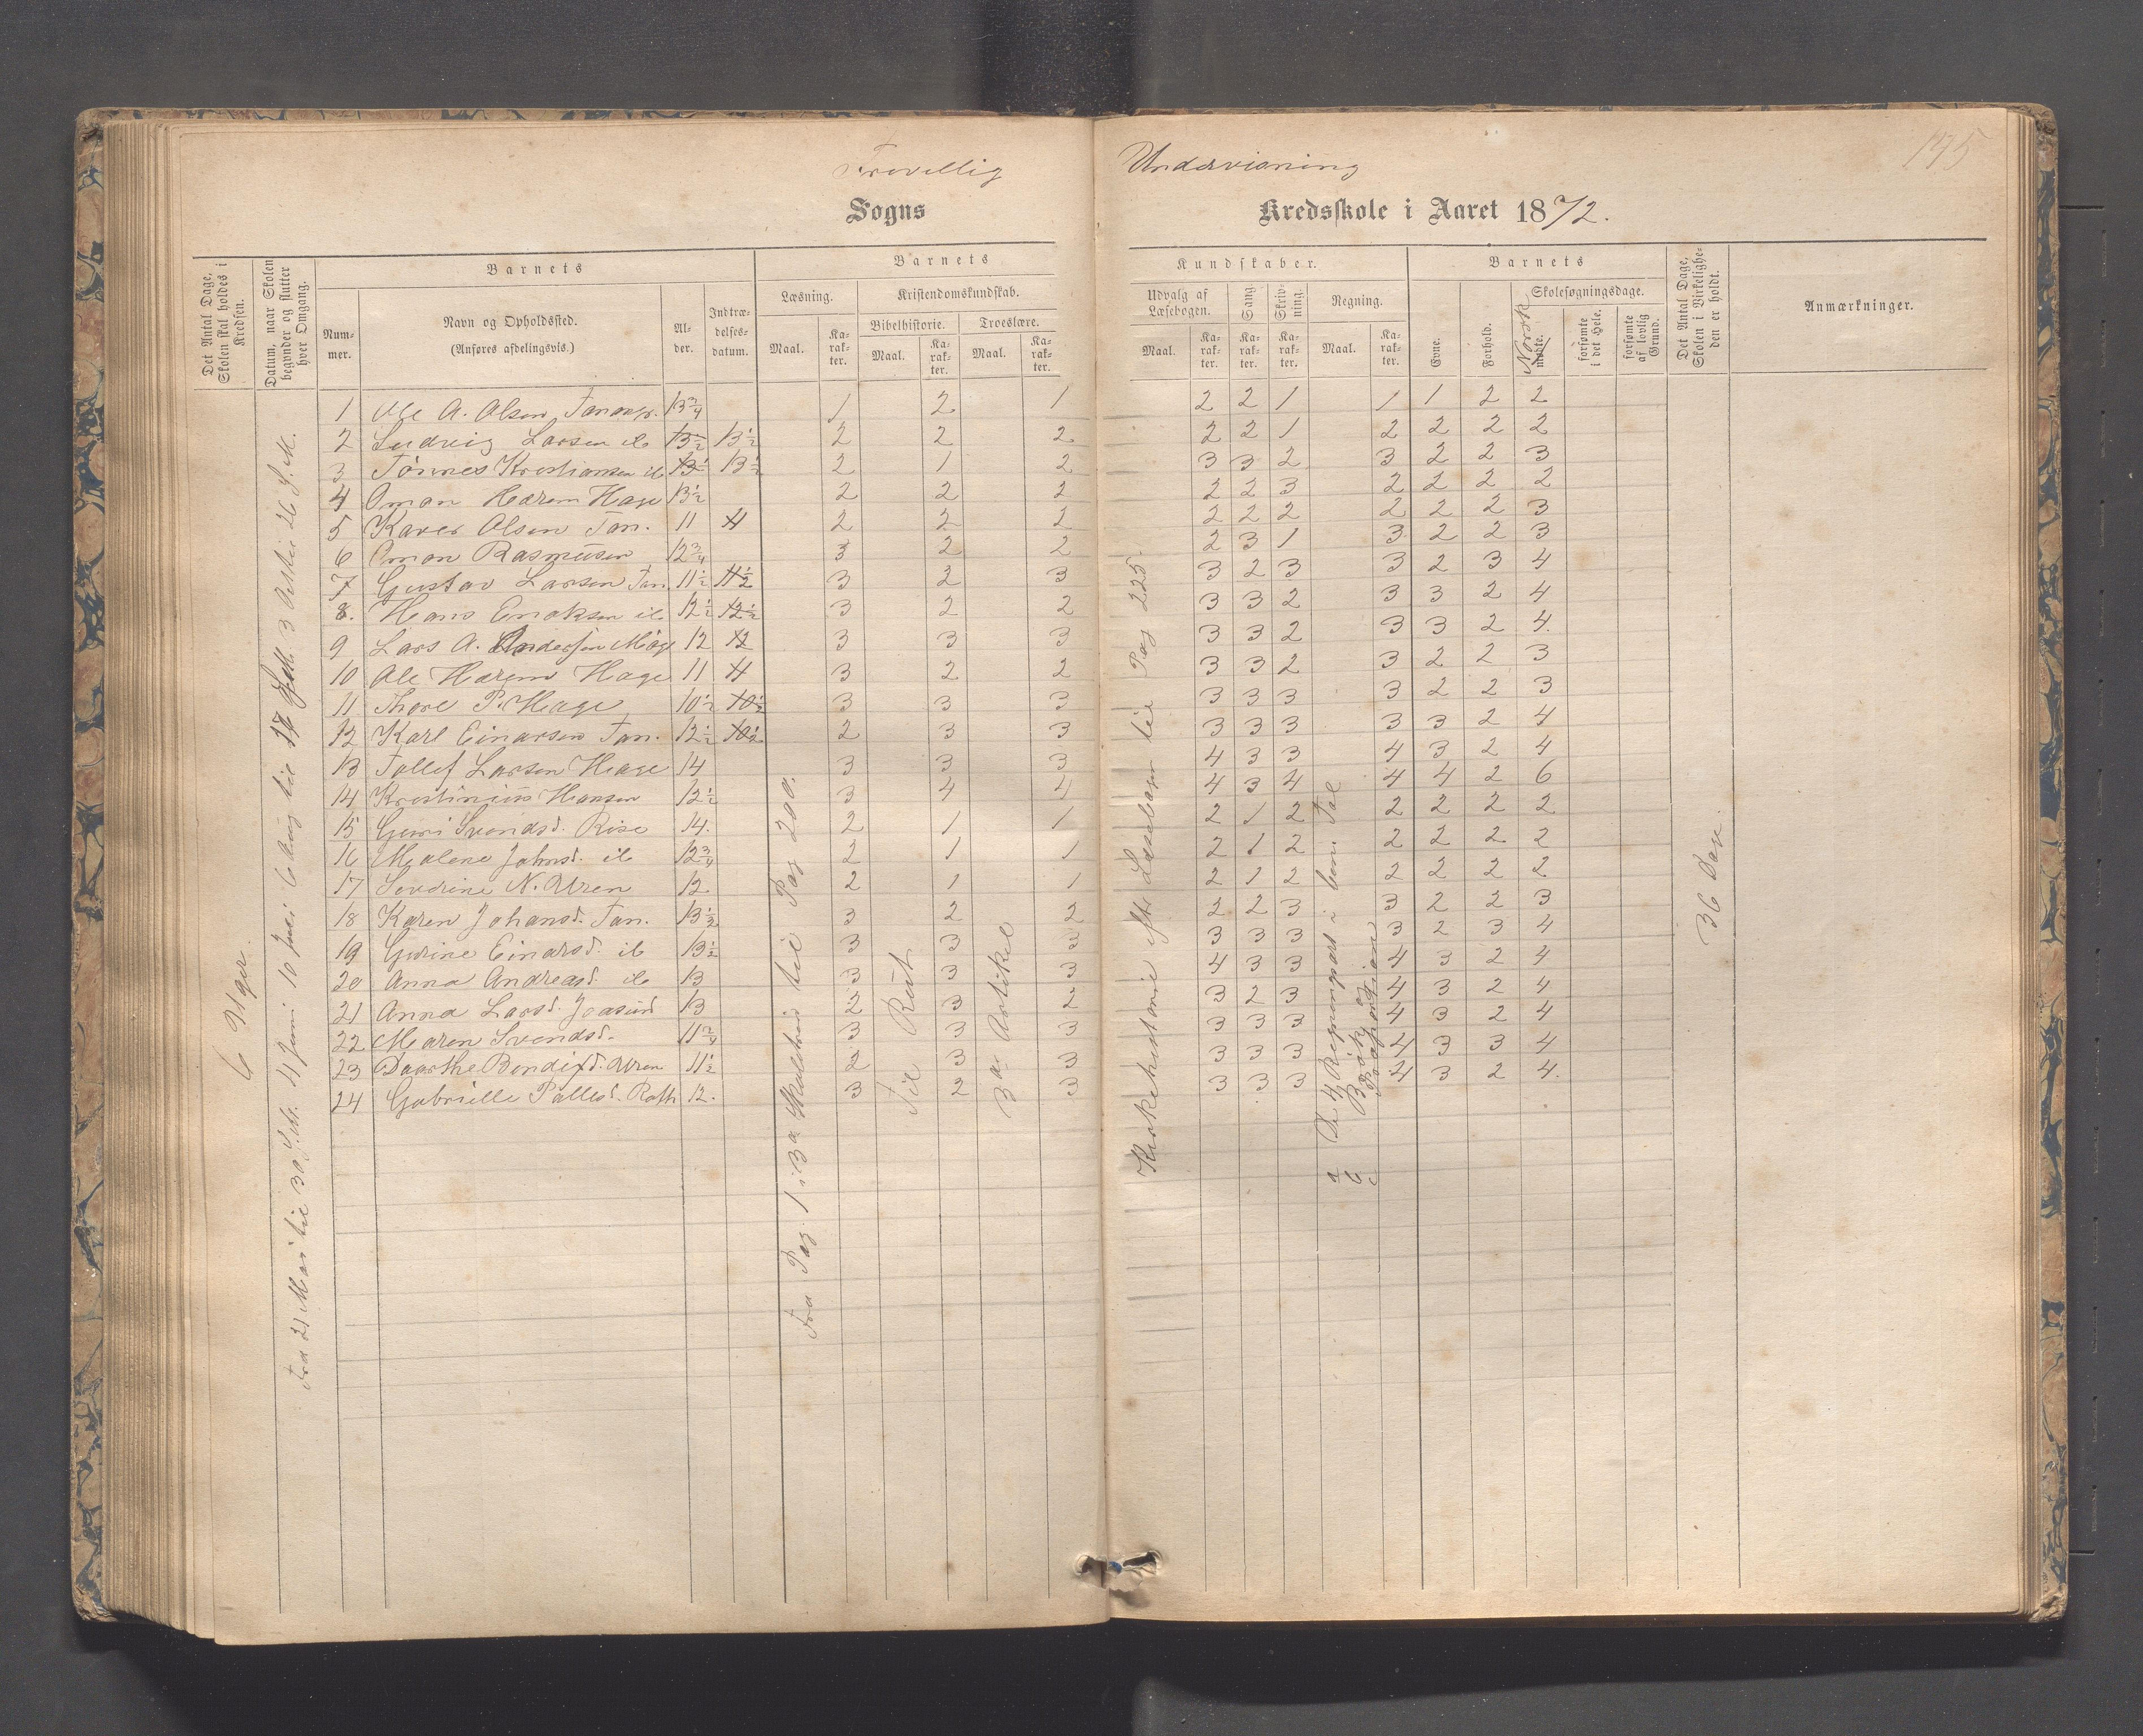 Frivillig Undervisning
145
Sogns Kredsskole i Aaret 1872.
Det Antal Dage, Skolen skal holdes i Kredsen.
Datum, naar Skolen begynder og slutter hver Omgang.
Barnets
Nummer.
Navn og Opholdssted.
(Anføres afdelingsvis.)
Alder.
Indtrædelsesdatum.
Barnets
Læsning.
Kristendomskundskab.
Bibelhistorie.
Troeslære.
Maal.
Karakter.
Maal.
Karakter.
Maal.
Karakter.
Kundskaber.
Udvalg af Læsebogen.
Sang.
Skrivning.
Regning.
Maal.
Karakter.
Karakter.
Karakter.
Maal.
Karakter.
Barnets
Evne.
Forhold.
Skolesøgningsdage.
Norsk
mødte.
forsømte i det Hele.
forsømte af lovlig Grund.
Det Antal Dage, Skolen i Virkeligheden er holdt.
Anmærkninger.
1 Ole A. Olsen Tananger. 13 3/4 1 2 1 2 2 1 1 1 2 2
2 Ludvig Larsen ib 13 1/2 13 1/2 2 2 2 2 2 1 2 2 2 2
3 Tønnes Kristiansen ib 13 1/2 13 1/2 2 1 2 3 3 2 3 2 2 3
4 Oman Harem Hage 13 1/2 2 2 2 2 2 3 2 2 2 2
5 Olsen Tan. 11 11 2 2 2 2 2 2 2 2 2 3
6 Oman Rasmusen 12 3/4 3 2 2 2 3 1 3 2 2 3
7 Gustav Larsen Tan. 11 1/2 11 1/2 3 2 3 3 2 3 3 2 3 4
8. Hans Eriksen ib 12 1/2 12 1/2 3 2 2 3 3 2 3 3 2 4
9 Lars A. Andersen 12 12 3 3 3 3 3 2 3 3 2 4.
10 Ole Harem Hage 11 11 3 2 2 3 3 2 3 2 2 3
11 Thore P. Hage 10 1/2 10 1/2 3 3 3 3 3 3 3 2 2 3
12 Karl Einarsen Tan. 12 1/2 10 1/2 2 3 3 3 3 3 3 3 2 4
13 Tollef Larsen Hage 14 3 3 3 4 3 3 4 3 2 4
14 Kristinius Hansen 12 1/2 3 4 4 4 3 4 4 4 2 6
15 Guri Svendsd. Rise 14. 2 1 1 2 1 2 2 2 2 2
16 Malene Johnsd. ib 12 3/4 2 1 1 2 1 2 2 2 2 2
17 Sevrine N. Uren 12 2 1 1 2 1 2 2 2 2 2
18 Karen Johansd. Tan. 13 1/2 3 2 2 2 2 3 3 2 2 3
19 Gurine Einarsd. ib 13 1/2 3 3 3 3 3 3 3 2 3 4
20 Anna Andreasd. ib 13 3 3 3 4 3 3 4 3 2 4
21 Anna Larsd. Joasund 13 2 3 2 3 2 3 4 3 2 4
22 Maren Svendsd. 11 3/4 3 3 3 3 3 3 4 3 2 4
23 Daarthe Bendixd. Uren 11 1/2 2 3 3 3 3 3 4 3 3 4
24 Gabrielle Pallesd. Roth 12. 3 2 3 3 3 3 4 3 2 4.
6 Uger.
Fra 21 Mai til 30 4 Juni 10 Juli 6 Aug til 17 3 til 26
Fra Pag. 1 i 3a til Pag 200.
Til Rut
3die Artikel
Kirkehistorie efter Læsebogen til Pag 225.
a De 4 Regningsart i ben. Tal
b Brøk
c Proportion
36 Dage.